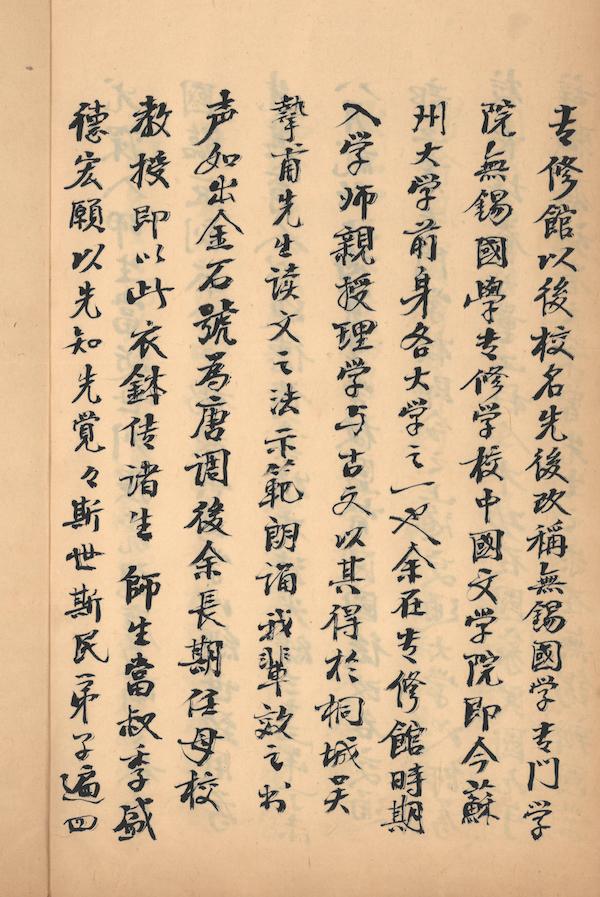 专修館以後校名先後改稱無錫國学专門学
院無錫國學专修学校中國文学院即今蘇
州大学前身各大学之一也余在专修館時期
入学师親授理学与古文以其得於桐城吴
摯甫先生读文之法示範朗誦我輩效之书
声如出金石號為唐調後余長期任母校
教授即以此衣鉢传诸生 師生當叔季盛
德宏願以先知先覺々斯世斯民一弟子遍四